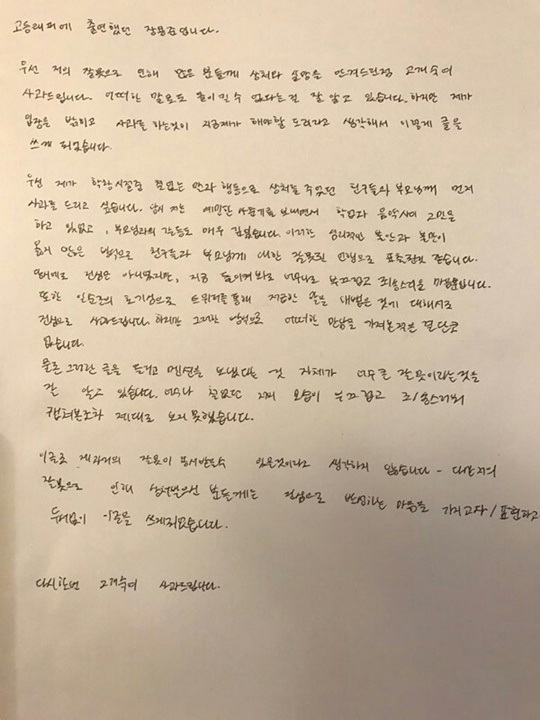 고등래퍼에 출연했던 장용준입니다.
우선 저의 잘못으로 인해 많은 분들께 상처와 실망을 안겨드린점 고개숙여
사과드립니다. 어떠한 말로도 용서 수 없다는걸 잘 알고 있습니다. 하지만 제가
입장을 밝히고 사과를 하는것이 지금제가 해야할 도리라고 생각해서 이렇게 글을
쓰게 되었습니다.
우선 제가 학창시절중 철없는 언과 행동으로 상처를 주었던 친구들과 부모님께 먼저
사과를 드리고 싶습니다. 당시 저는 예민한 사춘기를 보내면서 학업과 음악사이 고민을
하고 있었고, 부모님과의 갈등도 매우 깊었습니다. 이러한 심리적인 불안과 불만이
옳지 않은 방식으로 친구들과 부모님께 대한 잘못된 언행으로 표출된것 같습니다.
진심은 아니었지만, 지금 돌이켜봐도 너무나도 부끄럽고 죄송스러운 마음뿐입니다.
또한 일순간의 호기심으로 트위터를 통해 저급한 말을 내뱉은것에 대해서도
진심으로 사과드립니다. 하지만 그러한 방식으로 어떠한 만남을 가져본적은 결단코
없습니다.
물론 그러한 글을 들고 멘션을 보냈다는 것 자체가 너무 큰 잘못이라는것을
잘 알고 있습니다. 너무나 철없던 모습이 부끄럽고 죄송스러워
캡쳐본조차 제대로 보지 못했습니다.
이글로 제과거의 잘못이 용서받을수 있을것이라고 생각하지 않습니다. 다만저의
잘못으로 인해 상처받으신 분들께는 진심으로 반성하는 마음을 가지고자/표현하고
두서없이 이글을 쓰게되었습니다.
다시한번 고개숙여 사과드립니다.